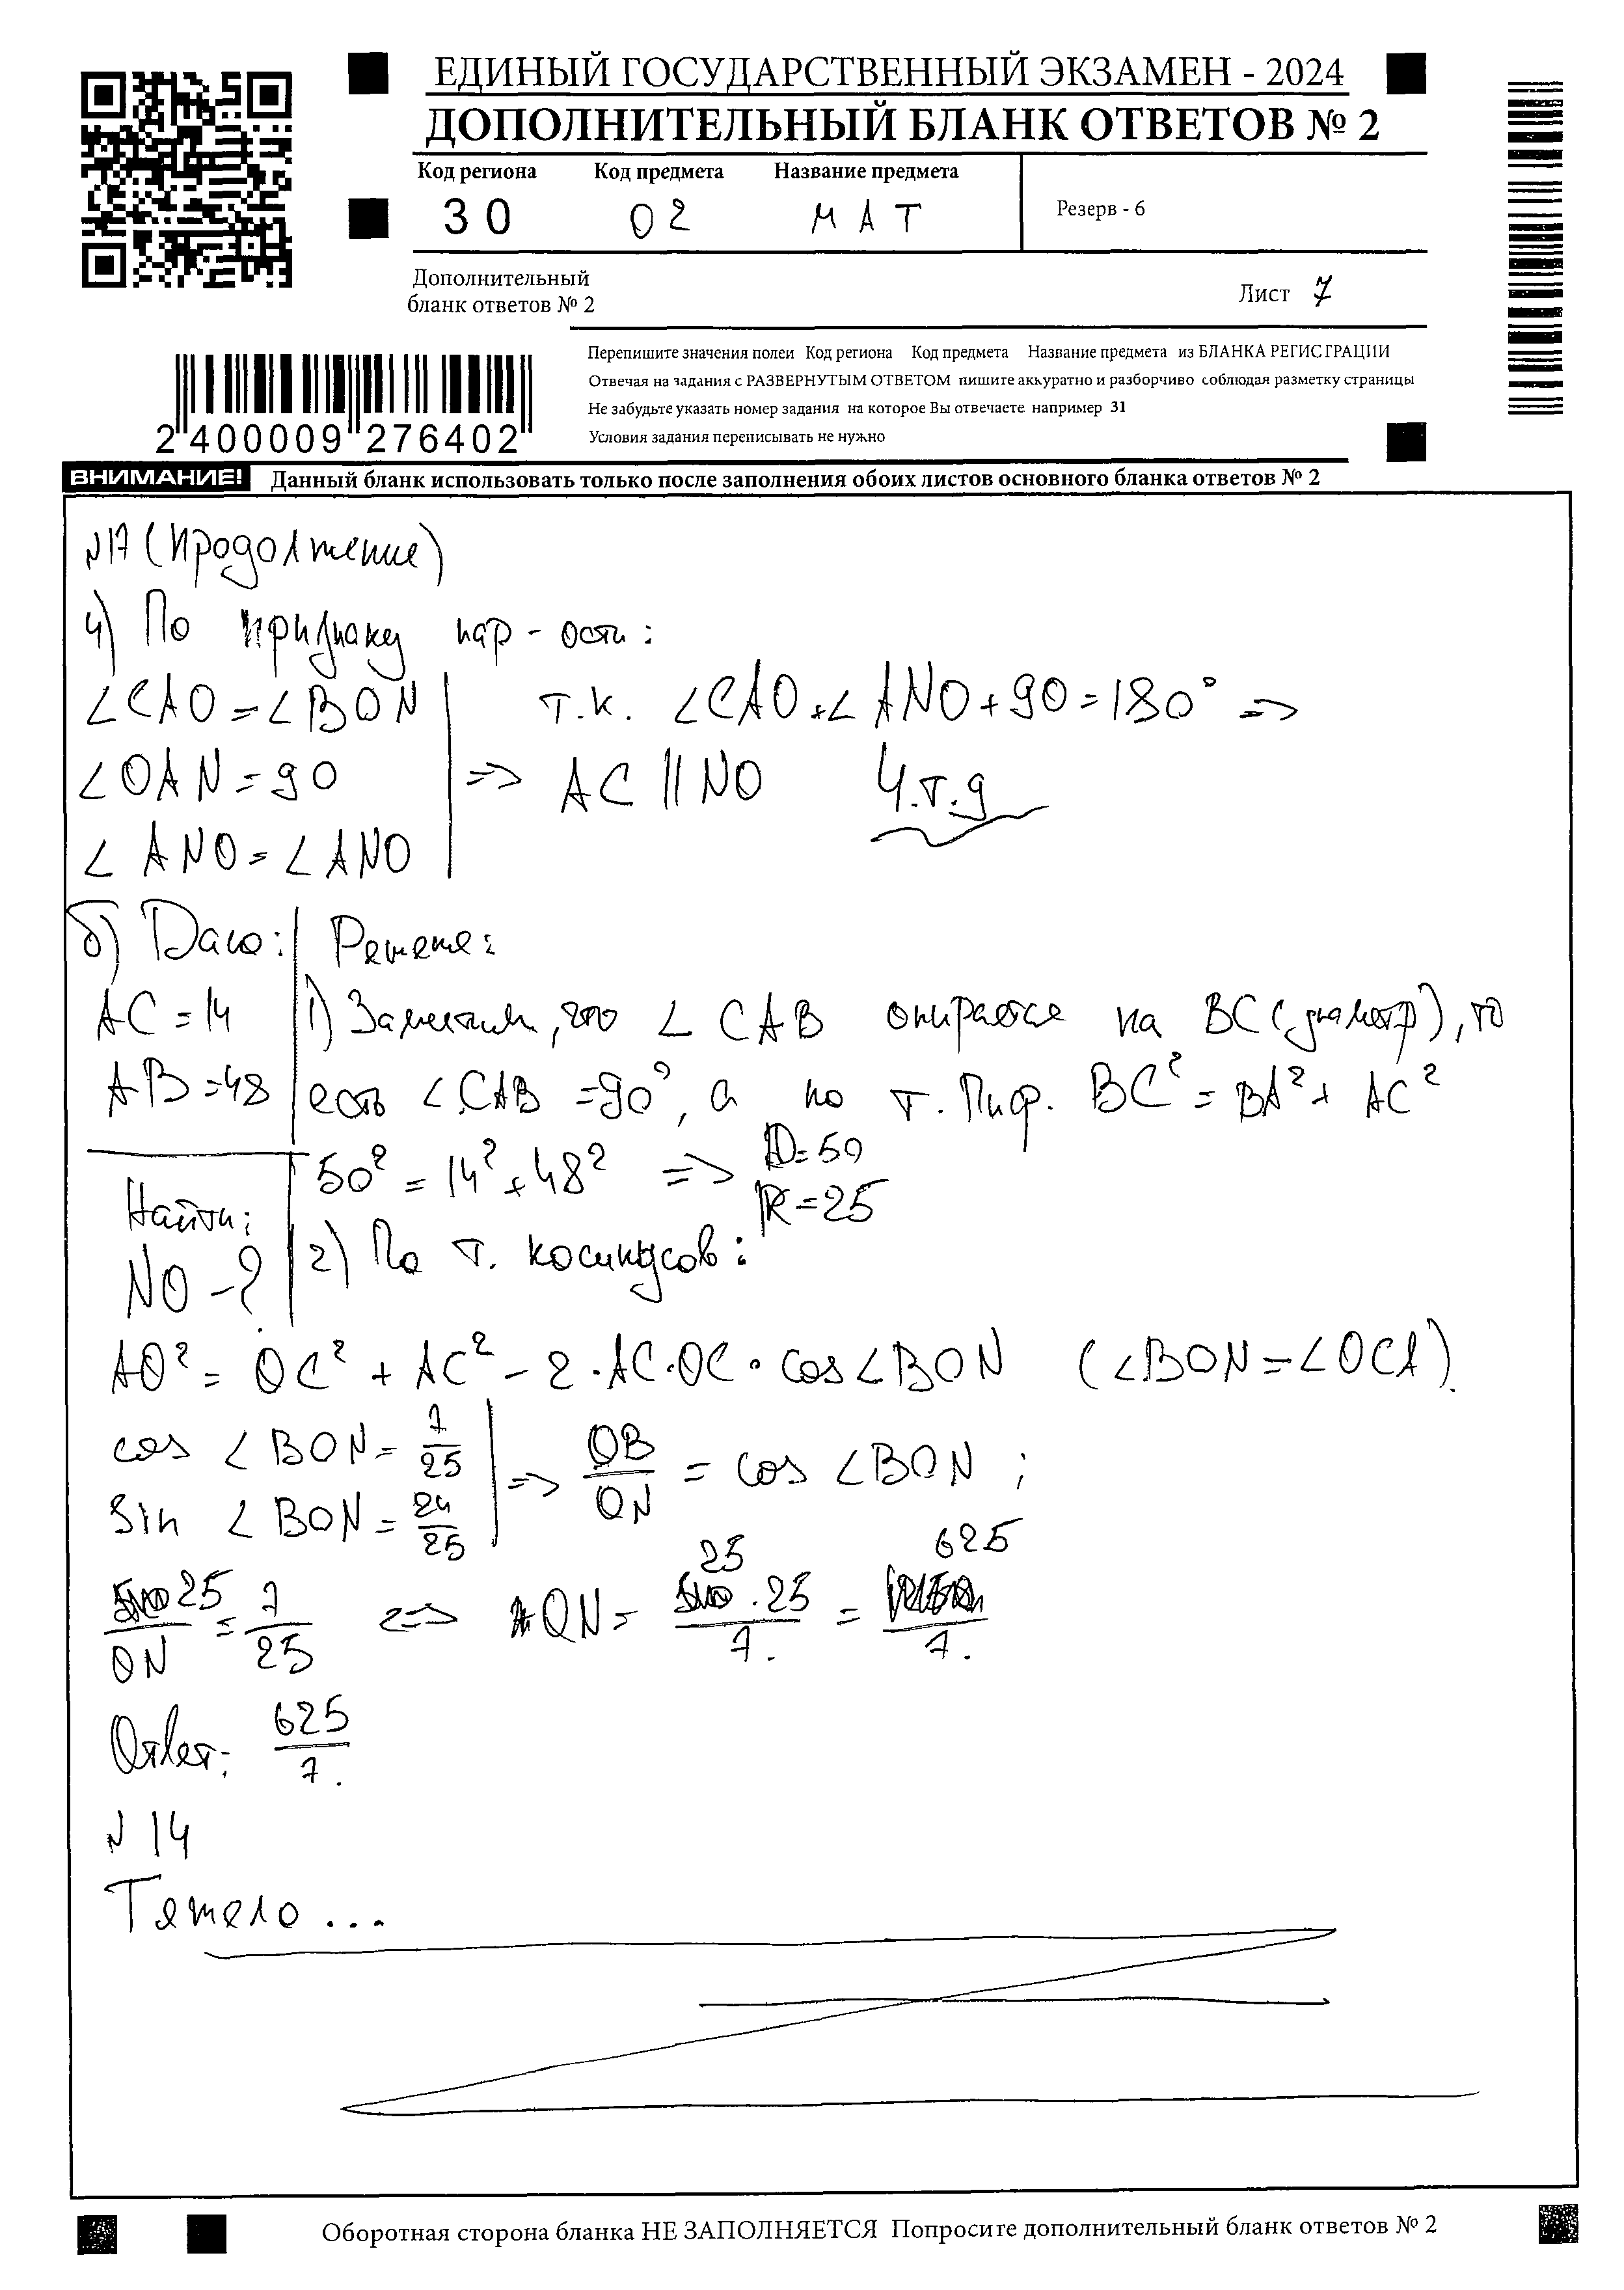 ЕДИНЫЙ ГОСУДАРСТВЕННЫЙ ЭКЗАМЕН - 2024
ДОПОЛНИТЕЛЬНЫЙ БЛАНК ОТВЕТОВ № 2
Код региона Код предмета Название предмета
30 02 МАТ
Резерв - 6
Дополнительный
бланк ответов № 2
Лист 7
Перепишите значения полей Код региона Код предмета Название предмета из БЛАНКА РЕГИСТРАЦИИ
Отвечая на задания с РАЗВЕРНУТЫМ ОТВЕТОМ пишите аккуратно и разборчиво соблюдая разметку страницы
Не забудьте указать номер задания на которое Вы отвечаете например 31
Условия задания переписывать не нужно
2400009 276402
ВНИМАНИЕ! Данный бланк использовать только после заполнения обоих листов основного бланка ответов № 2
N17 (Продолжение)
4) По признаку пар-ости:
∠CAO = ∠BON т.к. ∠CAO + ∠ANO + 90 = 180° =>
∠OAN = 90 => AC || NO Ч.т.д
∠ANO = ∠ANO
б) Дано: Решение:
AC = 14 1) Заметим, что ∠CAB опирается на BC (диаметр), то
AB = 48 есть ∠CAB = 90°, а по т. Пиф. BC² = BA² + AC²
50² = 14² + 48² => D = 50
R = 25
Найти:
NO - ? 2) По т. косинусов:
AO² = OC² + AC² - 2·AC·OC·cos∠BON (∠BON = ∠OCA).
cos ∠BON = 7/25 => OB/ON = cos ∠BON ;
sin ∠BON = 24/25
25/ON = 7/25 <=> ON = 25·25/7. = 625/7.
Ответ: 625/7.
N 14
Тяжело ...
Оборотная сторона бланка НЕ ЗАПОЛНЯЕТСЯ Попросите дополнительный бланк ответов № 2